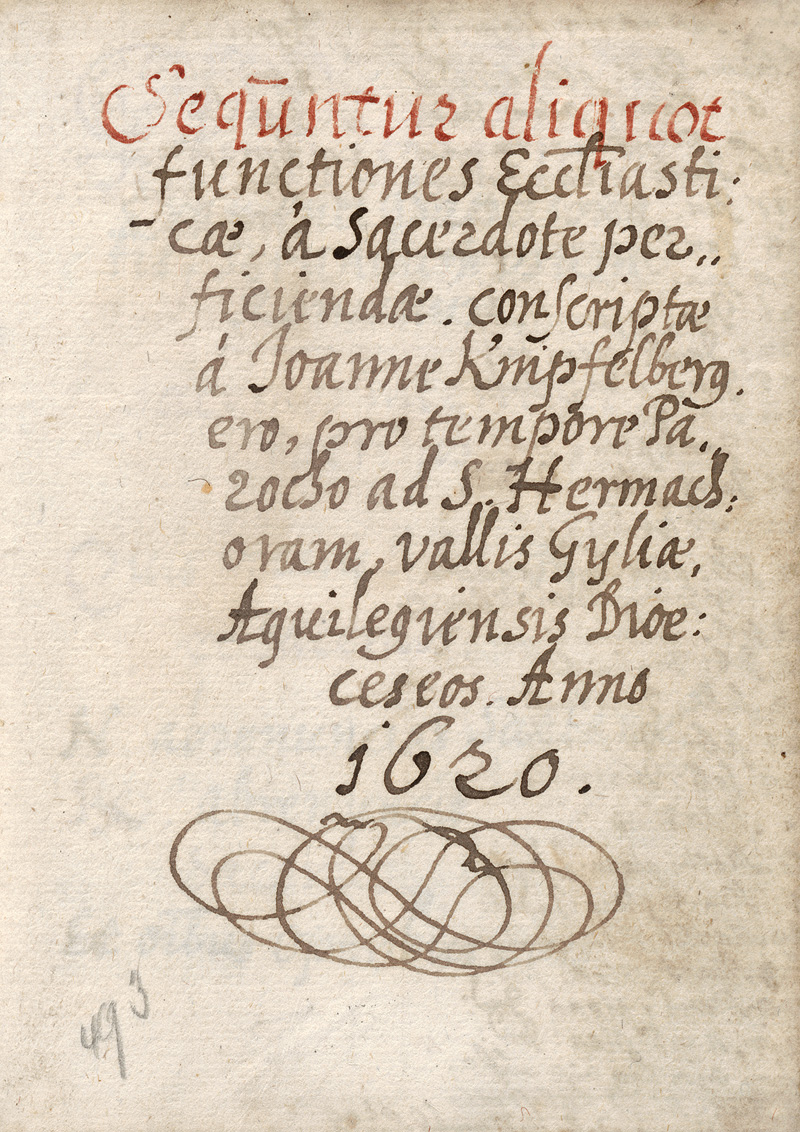 Seqūntur aliquot
functiones Eccl̄iasti:
cæ, à Sacerdote per„
ficiendæ. conscriptæ
á Joanne Knipfelberg.
ero, pro tempore Pa„
rocho ad S. Hermach:
oram, vallis Gyliæ,
Aquilegiensis Dioe:
ceseos. Anno
1620.
493